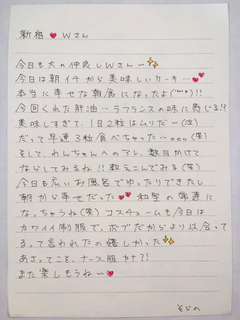 新宿♥Wさん
今日も大の仲良しWさん〜✨
今日は朝イチから美味しいケーキ…💕
本当に幸せな朝食になったよ(*^^*)!!
今回くれた肝油…ラフランスの味に感じる!?
美味しすぎて、1日2粒はムリだー(泣)
だって早速3粒食べちゃった…。。。(笑)
そして、わんちゃんへのアレ、数日かけて
ならしてみるね!!教えこんでみる(笑)
今日も広いお風呂でゆったりできたし
朝から幸せだった💕和塾の常連に
なっちゃうね(笑)コスチュームも今日は
カワイイ制服で、ボブだからより似合って
るって言われたの嬉しかった✨
あさってこそ、ナース服かナ?!
また楽しもうね〜♥